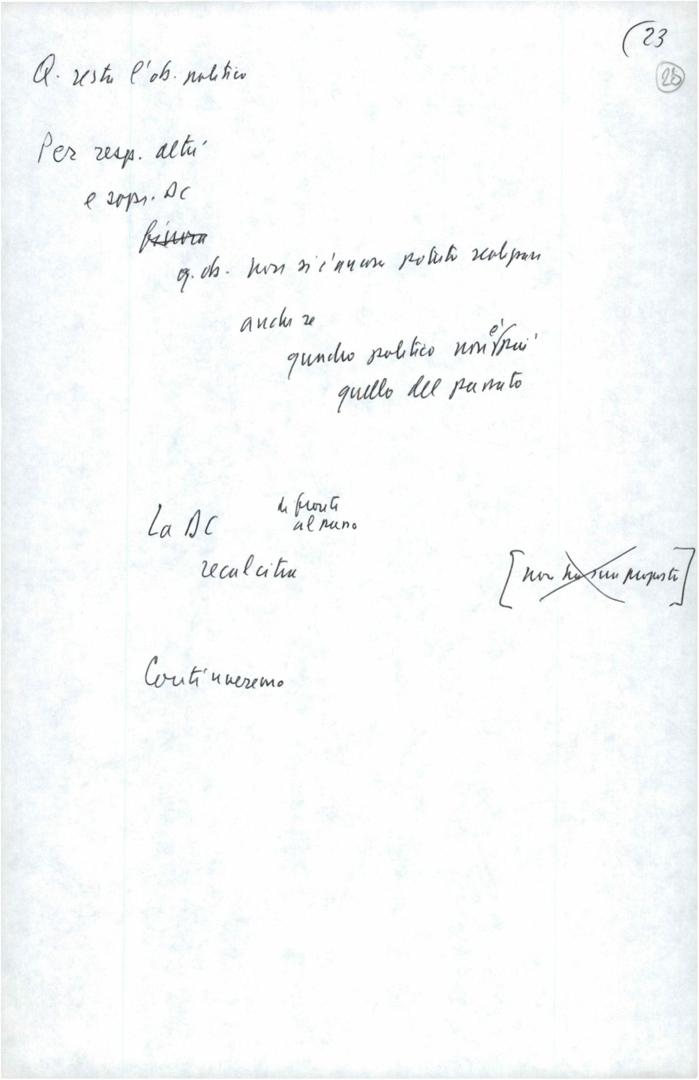 (23
28
Q. resta l'ob. politico
Per resp. altrui
e sopr. DC
finora
q. ob. non si è ancora potuto
anche se
quadro politico non è più
quello del passato
La DC di fronte
al passo
recalcitra
[non ha sue proposte]
Continueremo